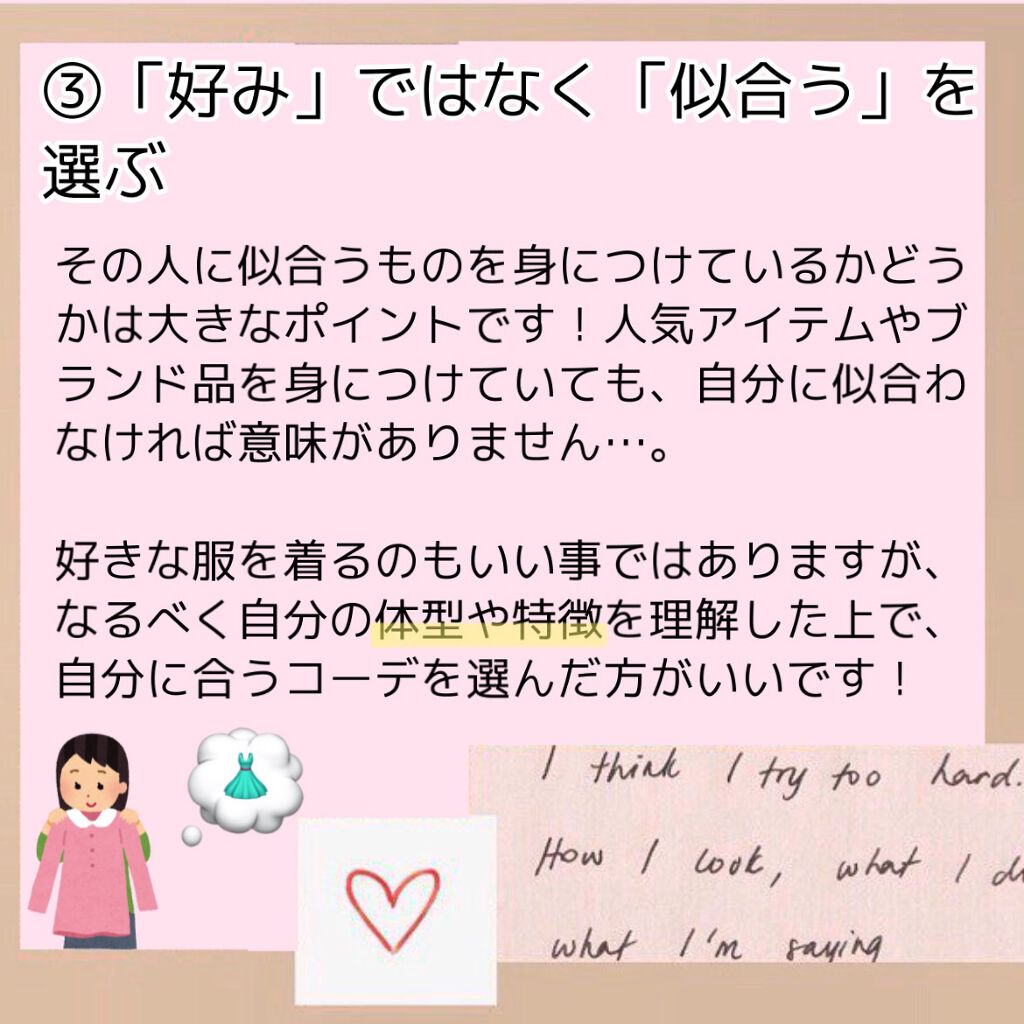 ③「好み」ではなく「似合う」を
選ぶ
その人に似合うものを身につけているかどう
かは大きなポイントです！人気アイテムやブ
ランド品を身につけていても、自分に似合わ
なければ意味がありません…。
好きな服を着るのもいい事ではありますが、
なるべく自分の体型や特徴を理解した上で、
自分に合うコーデを選んだ方がいいです！
I think I try too hard.
How I look, what I
what I'm saying